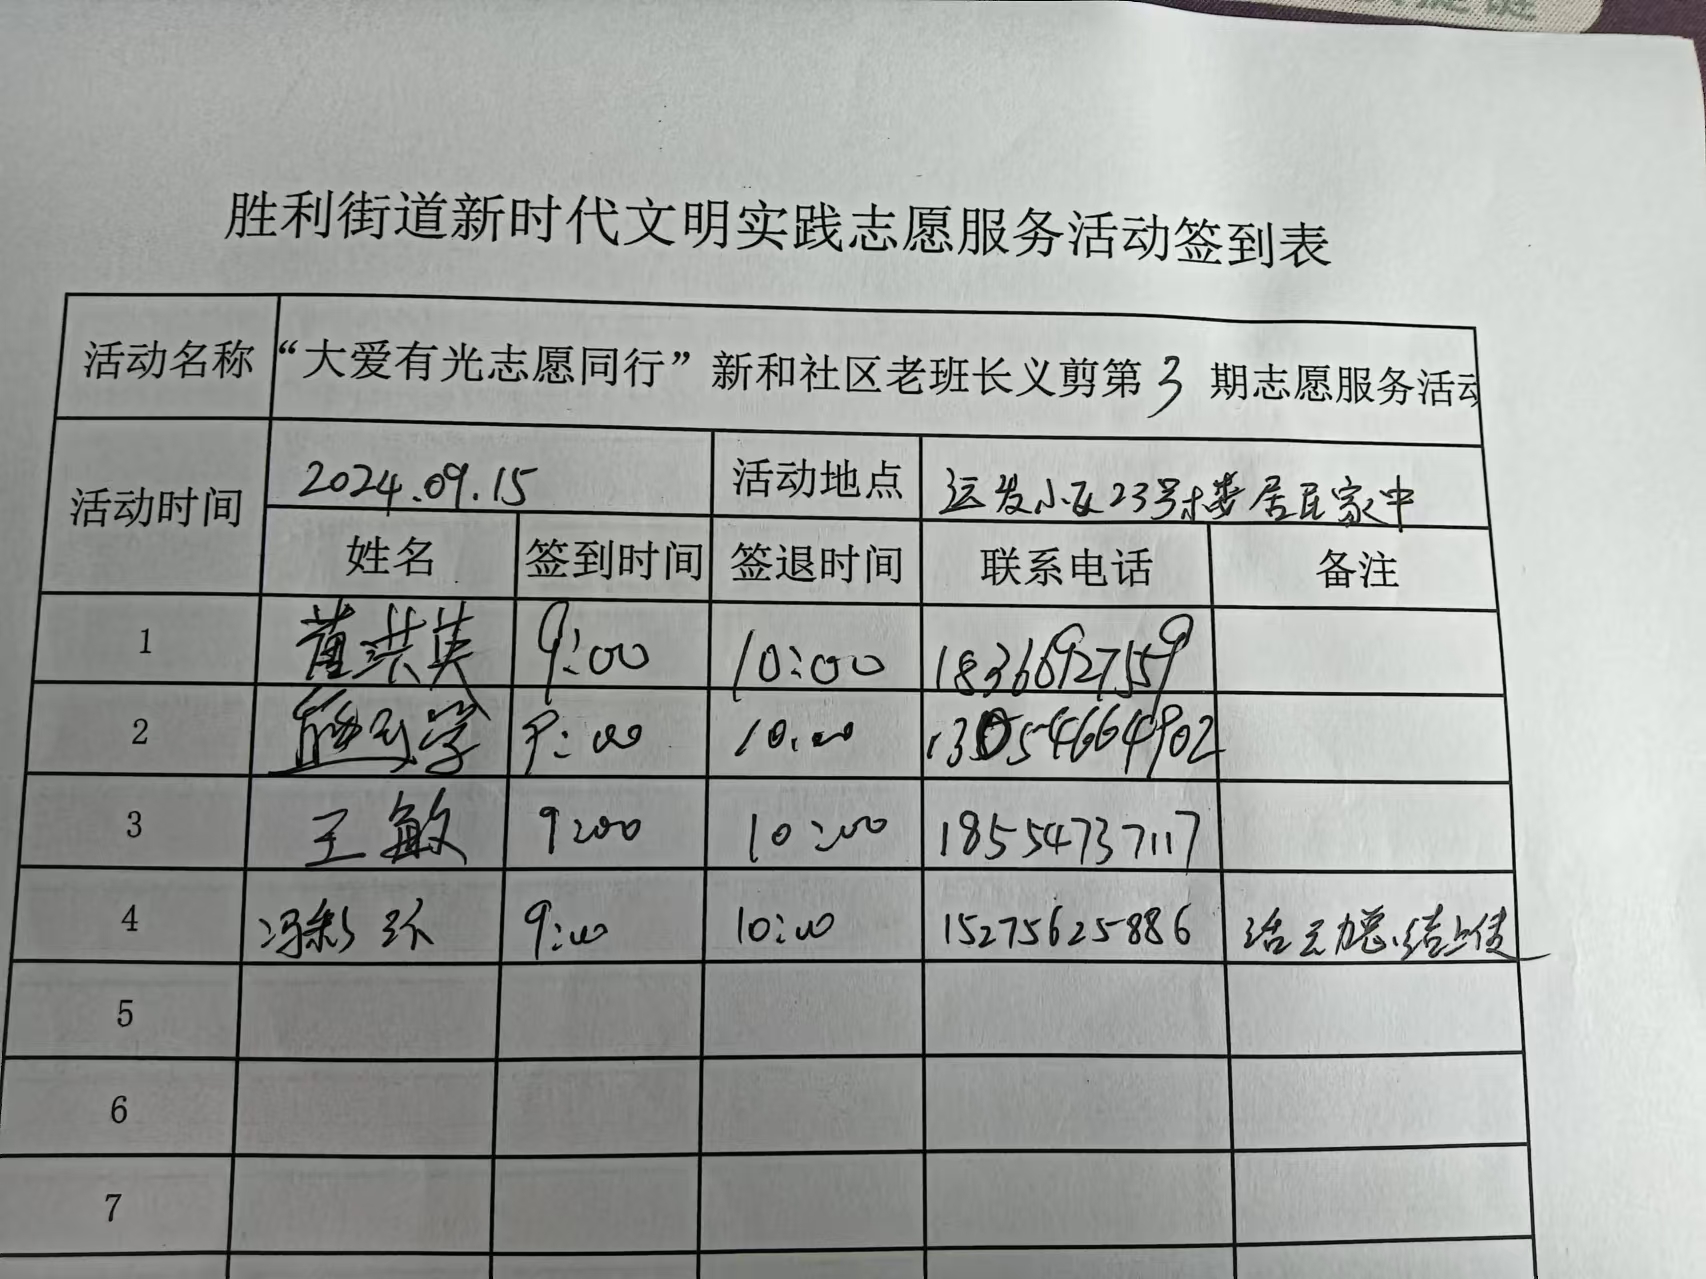 胜利街道新时代文明实践志愿服务活动签到表
活动名称 “大爱有光志愿同行”新和社区老班长义剪第3期志愿服务活动
活动时间 2024.09.15 活动地点 运发小区23号楼居民家中
姓名 签到时间 签退时间 联系电话 备注
1 董洪英 9:00 10:00 18366927559
2 熊 学 9:00 10:00 13054664902
3 王敏 9:00 10:00 18554737117
4 冯彩环 9:00 10:00 15275625886 活动总结上传
5
6
7